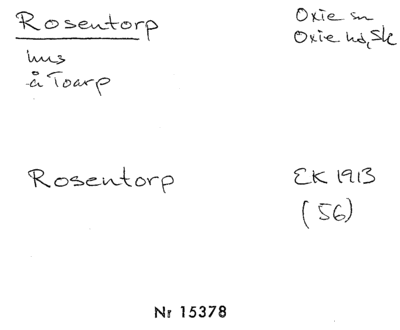 Rosentorp
Oxie sn
Oxie hd, Sk
hus
å Toarp
Rosentorp
EK 1913
(56)
Nr 15378